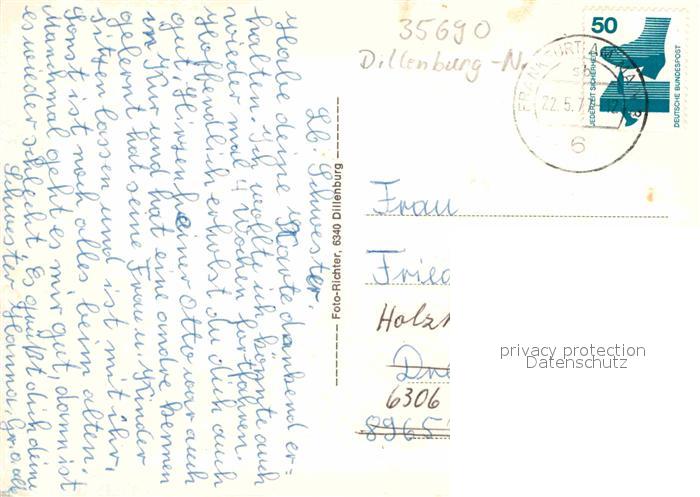 35690
Dillenburg - N
50
JEDERZEIT SICHERHEIT
DEUTSCHE BUNDESPOST
FRANKFURT AM MAIN
22.5.7
6
Lb. Schwester,
Habe deine Karte dankend er=
halten. Ich wollte ich könnte auch
wieder mal 4 Wochen fortfahren.
Hoffendlich erholst du dich auch
gut. Heinz war auch
im und hat eine andre kennen
gelernt hat seine Frau u. Kinder
sitzen lassen und ist mit ihr,
Sonst ist noch alles beim alten,
Manchmal geht es mir gut, dann ist
es wieder schlecht Es grüßt dich deine
Schwester Hanna,
Foto-Richter, 6340 Dillenburg
Frau
Fried
Holz
Dr
6306
8965
privacy protection
Datenschutz